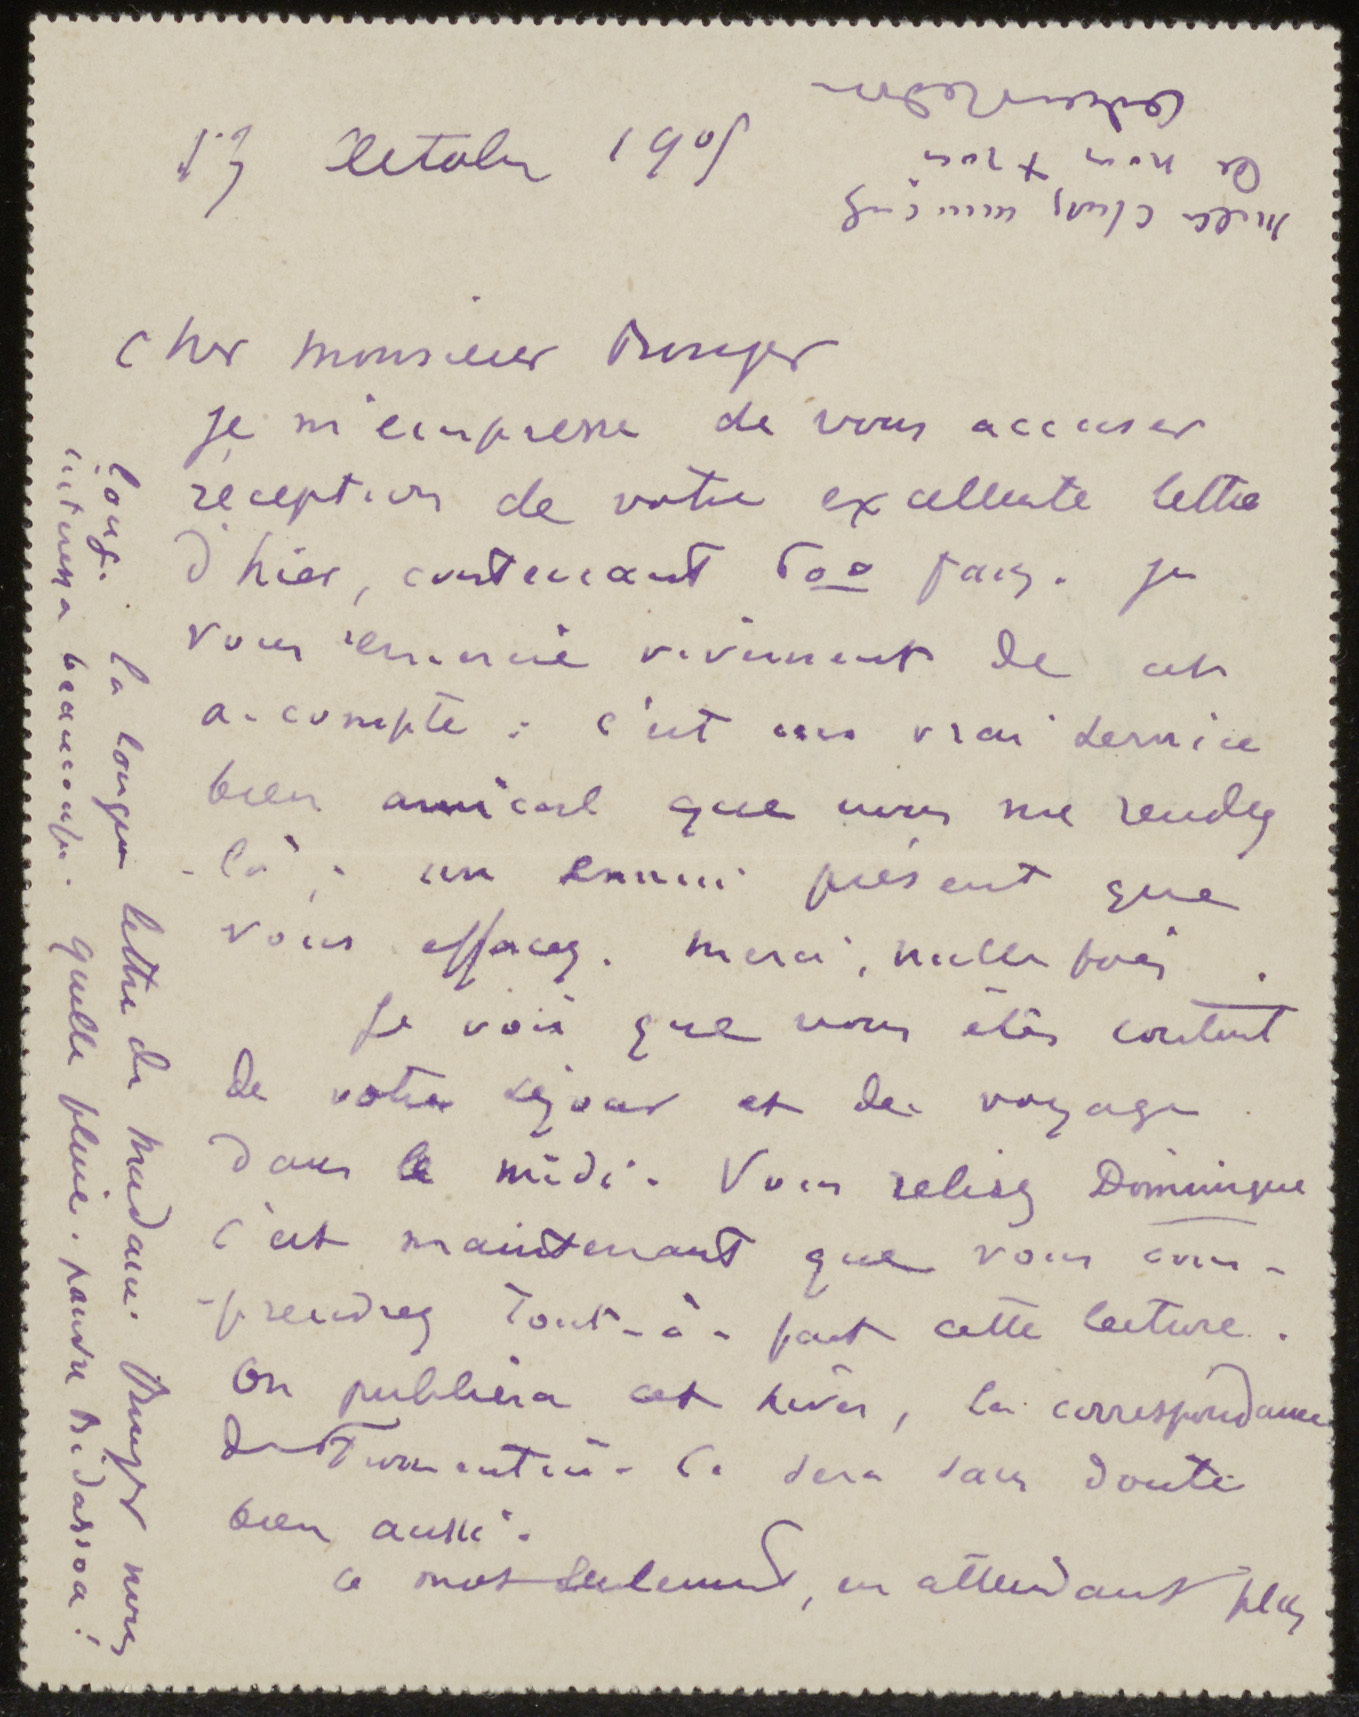 13 Octobre 1905
Cher monsieur Bonger
je m'empresse de vous accuser
réception de votre excellente lettre
d'hier, contenant 500 francs. je
vous remercie vivement de cet
a-compte : c'est un vrai service
bien amical que vous me rendez
-là ; un ennui présent que
vous effacez. Merci, mille fois.
Je vois que vous êtes content
de votre séjour et de voyage
dans le midi. Vous relisez Dominique
c'est maintenant que vous com-
-prendrez tout-à-fait cette lecture.
On publiera cet hiver, la correspondance
de Fromentin. Ce sera sans doute
bien aussi.
ce mot seulement, en attendant plus
long. la longue lettre de madame Bonger nous
intéressa beaucoup. quelle pluie. pauvre Bidassoa !
Mille choses
de nous trois
Odilon Redon